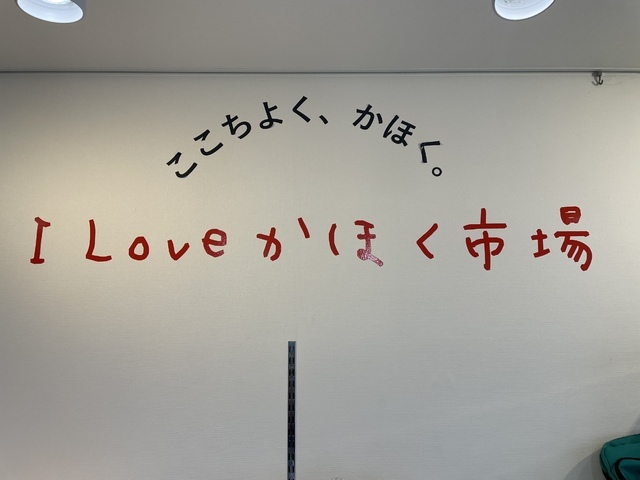 ここちよく、かほく。
I Love かほく市場